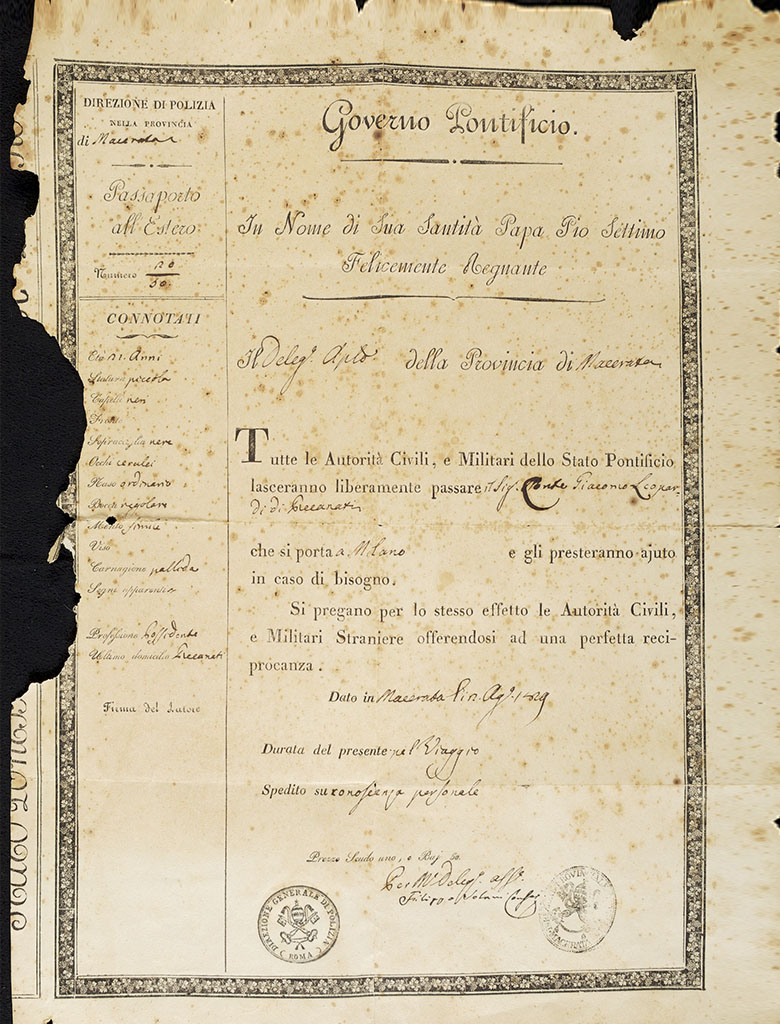 DIREZIONE DI POLIZIA
NELLA PROVINCIA
di Macerata
Passaporto
all'Estero
Numero
CONNOTATI
Età 21. Anni
Statura piccola
Capelli neri
Fronte
Sopraciglia nere
Occhi cerulei
Naso ordinario
Bocca regolare
Mento simile
Viso
Carnagione pallida
Segni apparenti
Professione Possidente
Ultimo domicilio Reccanati
Firma del Latore
Governo Pontificio.
In Nome di Sua Santità Papa Pio Settimo
Felicemente Regnante
Il Deleg.o Aplo della Provincia di Macerata
Tutte le Autorità Civili, e Militari dello Stato Pontificio
lasceranno liberamente passare il Sig. Conte Giacomo Leopar-
di di Reccanati
che si porta a Milano e gli presteranno ajuto
in caso di bisogno.
Si pregano per lo stesso effetto le Autorità Civili,
e Militari Straniere offerendosi ad una perfetta reci-
procanza.
Dato in Macerata
Durata del presente pel Viaggio
Spedito su conosienza personale
Prezzo Scudo uno, e Baj
Per M.r Deleg.o
DIREZIONE GENERALE DI POLIZIA
ROMA
MACERATA